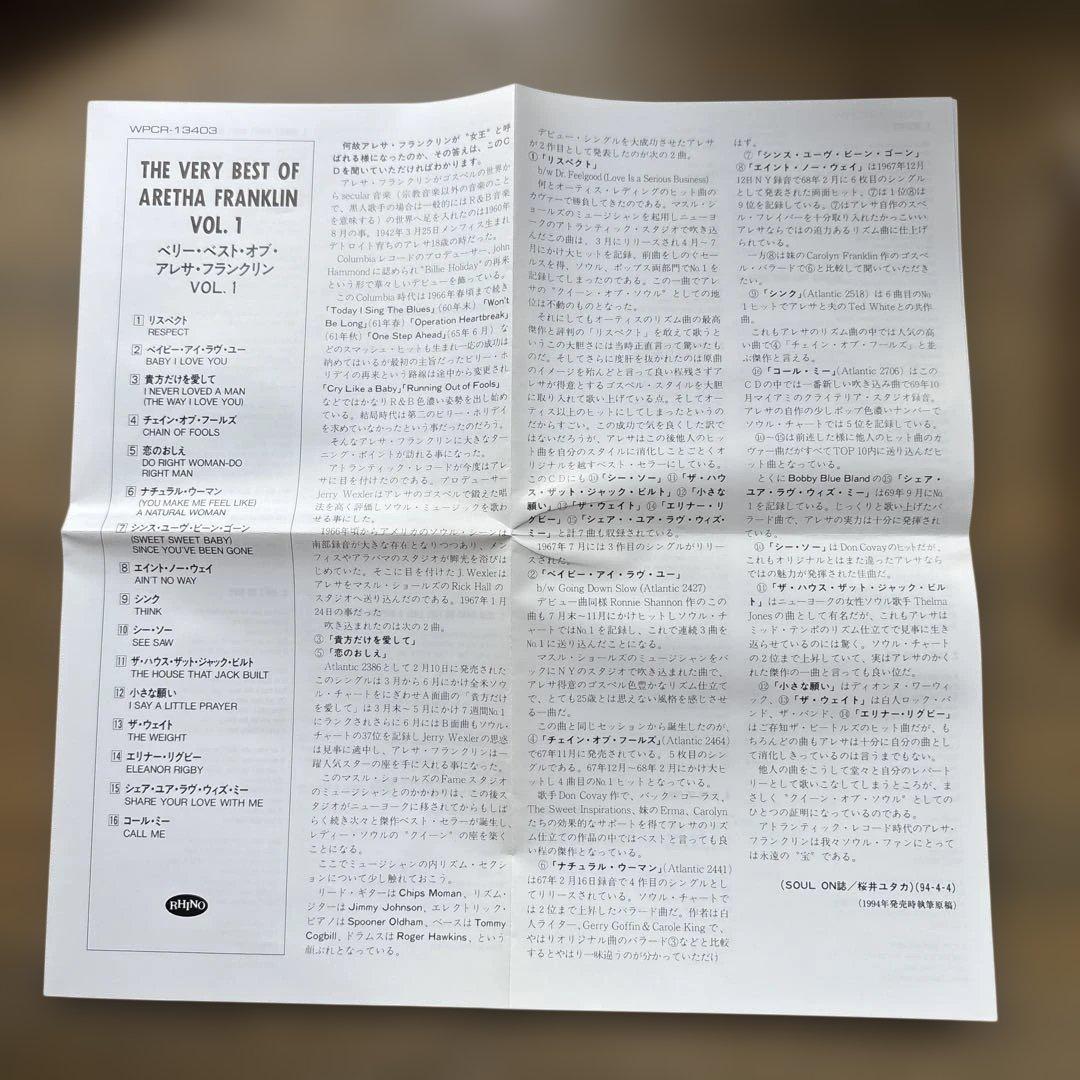 WPCR-13403
THE VERY BEST OF
ARETHA FRANKLIN
VOL. 1
ベリー・ベスト・オブ・
アレサ・フランクリン
VOL. 1
1 リスペクト
RESPECT
2 ベイビー・アイ・ラヴ・ユー
BABY I LOVE YOU
3 貴方だけを愛して
I NEVER LOVED A MAN
(THE WAY I LOVE YOU)
4 チェイン・オブ・フールズ
CHAIN OF FOOLS
5 恋のおしえ
DO RIGHT WOMAN-DO
RIGHT MAN
6 ナチュラル・ウーマン
(YOU MAKE ME FEEL LIKE)
A NATURAL WOMAN
7 シンス・ユーヴ・ビーン・ゴーン
(SWEET SWEET BABY)
SINCE YOU'VE BEEN GONE
8 エイント・ノー・ウェイ
AIN'T NO WAY
9 シンク
THINK
10 シー・ソー
SEE SAW
11 ザ・ハウス・ザット・ジャック・ビルト
THE HOUSE THAT JACK BUILT
12 小さな願い
I SAY A LITTLE PRAYER
13 ザ・ウェイト
THE WEIGHT
14 エリナー・リグビー
ELEANOR RIGBY
15 シェア・ユア・ラヴ・ウィズ・ミー
SHARE YOUR LOVE WITH ME
16 コール・ミー
CALL ME
RHINO
何故アレサ・フランクリンが“女王”と呼
ばれる様になったのか、その答えは、このC
Dを聞いていただければわかります。
アレサ・フランクリンがゴスペルの世界か
らsecular音楽（宗教音楽以外の音楽のこと
で、黒人歌手の場合は一般的にはR&B音楽
を意味する）の世界へ足を入れたのは1960年
8月の事。1942年3月25日メンフィス生まれ
デトロイト育ちのアレサ18歳の時だった。
Columbiaレコードのプロデューサー、John
Hammondに認められ“Billie Holiday”の再来
という形で華々しいデビューを飾っている。
このColumbia時代は1966年春頃まで続き
「Today I Sing The Blues」(60年末)「Won't
Be Long」(61年春)「Operation Heartbreak」
(61年秋)「One Step Ahead」(65年6月)な
どのスマッシュ・ヒットも生まれ一応の成功は
納めてはいるが最初の主旨だったビリー・ホ
リデイの再来という路線は途中から変更され
「Cry Like a Baby」「Running Out of Fools」
などではかなりR&B色濃い姿勢を出し始め
ている。結局時代は第二のビリー・ホリデイ
を求めていなかったという事だったのだろう。
そんなアレサ・フランクリンに大きなター
ニング・ポイントが訪れる事になった。
アトランティック・レコードが今度はアレ
サに目を付けたのである。プロデューサー
Jerry Wexlerはアレサのゴスペルで鍛えた唱
法を高く評価しソウル・ミュージックを歌わ
せる事にした。
1966年頃からアメリカのソウル・シーンは
南部録音が大きな存在となりつつあり、メン
フィスやアラバマのスタジオが脚光を浴びは
じめていた。そこに目を付けたJ. Wexlerは
アレサをマスル・ショールズのRick Hallの
スタジオへ送り込んだのである。1967年1月
24日の事だった
吹き込まれたのは次の2曲。
③「貴方だけを愛して」
⑤「恋のおしえ」
Atlantic 2386として2月10日に発売された
このシングルは3月から6月にかけ全米ソウ
ル・チャートをにぎわせA面曲の「貴方だけ
を愛して」は3月末～5月にかけ7週間No.1
にランクされさらに6月にはB面曲もソウル・
チャートの37位を記録しJerry Wexlerの思惑
は見事に適中し、アレサ・フランクリンは一
躍人気スターの座を手に入れる事になった。
このマスル・ショールズのFameスタジオ
のミュージシャンとのかかわりは、この後ス
タジオがニューヨークに移されてからもしば
らく続き次々と傑作ベスト・セラーが誕生し、
レディー・ソウルの“クイーン”の座を築く
ことになる。
ここでミュージシャンの内リズム・セクシ
ョンについて少し触れておこう。
リード・ギターはChips Moman、リズム・
ジターはJimmy Johnson、エレクトリック・
ピアノはSpooner Oldham、ベースはTommy
Cogbill、ドラムスはRoger Hawkins、という
顔ぶれとなっている。
デビュー・シングルを大成功させたアレサ
が2作目として発表したのが次の2曲。
①「リスペクト」
b/w Dr. Feelgood (Love Is a Serious Business)
何とオーティス・レディングのヒット曲の
カヴァーで勝負してきたのである。マスル・シ
ョールズのミュージシャンを起用しニューヨ
ークのアトランティック・スタジオで吹き込
んだこの曲は、3月にリリースされ4月～7
月にかけ大ヒットを記録、前曲をしのぐセー
ルスを得、ソウル、ポップス両部門でNo.1を
記録してしまったのである。この一曲でアレ
サの“クイーン・オブ・ソウル”としての地
位は不動のものとなった。
それにしてもオーティスのリズム曲の最高
傑作と評判の「リスペクト」を敢えて歌うと
いうこの大胆さには当時正直言って驚いたも
のだ。そしてさらに度肝を抜かれたのは原曲
のイメージを殆んどと言って良い程残さずア
レサが得意とするゴスペル・スタイルを大胆
に取り入れて歌い上げている点。そしてオー
ティス以上のヒットにしてしまったというの
だからすごい。この成功で気を良くした訳で
はないだろうが、アレサはこの後他人のヒッ
ト曲を自分のスタイルに消化しことごとくオ
リジナルを越すベスト・セラーにしている。
このCDにも⑩「シー・ソー」⑪「ザ・ハウ
ス・ザット・ジャック・ビルト」⑫「小さな
願い」⑬「ザ・ウェイト」⑭「エリナー・リ
グビー」⑮「シェア・・ユア・ラヴ・ウィズ・
ミー」と計7曲も収録されている。
1967年7月には3作目のシングルがリリー
スされた。
②「ベイビー・アイ・ラヴ・ユー」
b/w Going Down Slow (Atlantic 2427)
デビュー曲同様Ronnie Shannon作のこの
曲も7月末～11月にかけヒットしソウル・チ
ャートではNo.1を記録し、これで連続3曲を
No.1に送り込んだことになる。
マスル・ショールズのミュージシャンをバ
ックにNYのスタジオで吹き込まれた曲で、
アレサ得意のゴスペル色豊かなリズム仕立て
で、とても25歳とは思えない風格を感じさせ
る一曲だ。
この曲と同じセッションから誕生したのが、
④「チェイン・オブ・フールズ」(Atlantic 2464)
で67年11月に発売されている。5枚目のシン
グルである。67年12月～68年2月にかけ大ヒ
ットし4曲目のNo.1ヒットとなっている。
歌手Don Covay作で、バック・コーラス、
The Sweet Inspirations、妹のErma、Carolyn
たちの効果的なサポートを得てアレサのリズ
ム仕立ての作品の中ではベストと言っても良
い程の傑作となっている。
⑥「ナチュラル・ウーマン」(Atlantic 2441)
は67年2月16日録音で4作目のシングルとし
てリリースされている。ソウル・チャートで
は2位まで上昇したバラード曲だ。作者は白
人ライター、Gerry Goffin & Carole Kingで、
やはりオリジナル曲のバラード③などと比較
するとやはり一味違うのが分かっていただけ
はず。
⑦「シンス・ユーヴ・ビーン・ゴーン」
⑧「エイント・ノー・ウェイ」は1967年12月
12日NY録音で68年2月に6枚目のシングル
として発表された両面ヒット、⑦は1位⑧は
9位を記録している。⑦はアレサ自作のスペ
ル・フレイバーを十分取り入れたかっこいい
アレサならではの迫力あるリズム曲に仕上げ
られている。
一方⑧は妹のCarolyn Franklin作のゴスペ
ル・バラードで⑥と比較して聞いていただき
たい。
⑨「シンク」(Atlantic 2518)は6曲目のNo.
1ヒットでアレサと夫のTed Whiteとの共作
曲。
これもアレサのリズム曲の中では人気の高
い曲で④「チェイン・オブ・フールズ」と並
ぶ傑作と言える。
⑯「コール・ミー」(Atlantic 2706)はこの
CDの中では一番新しい吹き込み曲で69年10
月マイアミのクライテリア・スタジオ録音。
アレサの自作の少しポップ色濃いナンバーで
ソウル・チャートでは5位を記録している。
⑩～⑮は前述した様に他人のヒット曲のカ
ヴァー曲だがすべてTOP 10内に送り込んだヒ
ット曲となっている。
とくにBobby Blue Blandの⑮「シェア・
ユア・ラヴ・ウィズ・ミー」は69年9月にNo.
1を記録している。じっくりと歌い上げたバ
ラード曲で、アレサの実力は十分に発揮され
ている。
⑩「シー・ソー」はDon Covayのヒットだが、
これもオリジナルとはまた違ったアレサなら
ではの魅力が発揮された佳曲だ。
⑪「ザ・ハウス・ザット・ジャック・ビル
ト」はニューヨークの女性ソウル歌手Thelma
Jonesの曲として有名だが、これもアレサは
ミッド・テンポのリズム仕立てで見事に生き
返らせているのには驚く。ソウル・チャート
の2位まで上昇していて、実はアレサのかく
れた傑作の一曲と言っても良い位だ。
⑫「小さな願い」はディオンヌ・ワーウィ
ック、⑬「ザ・ウェイト」は白人ロック・バ
ンド、ザ・バンド、⑭「エリナー・リグビー」
はご存知ザ・ビートルズのヒット曲だが、も
ちろんどの曲もアレサは十分に自分の曲とし
て消化しきっているのは言うまでもない。
他人の曲をこうして堂々と自分のレパート
リーとして歌いこなしてしまうところが、ま
さしく“クイーン・オブ・ソウル”としての
ひとつの証明になっているのである。
アトランティック・レコード時代のアレサ・
フランクリンは我々ソウル・ファンにとって
は永遠の“宝”である。
(SOUL ON誌／桜井ユタカ)(94-4-4)
(1994年発売時執筆原稿)